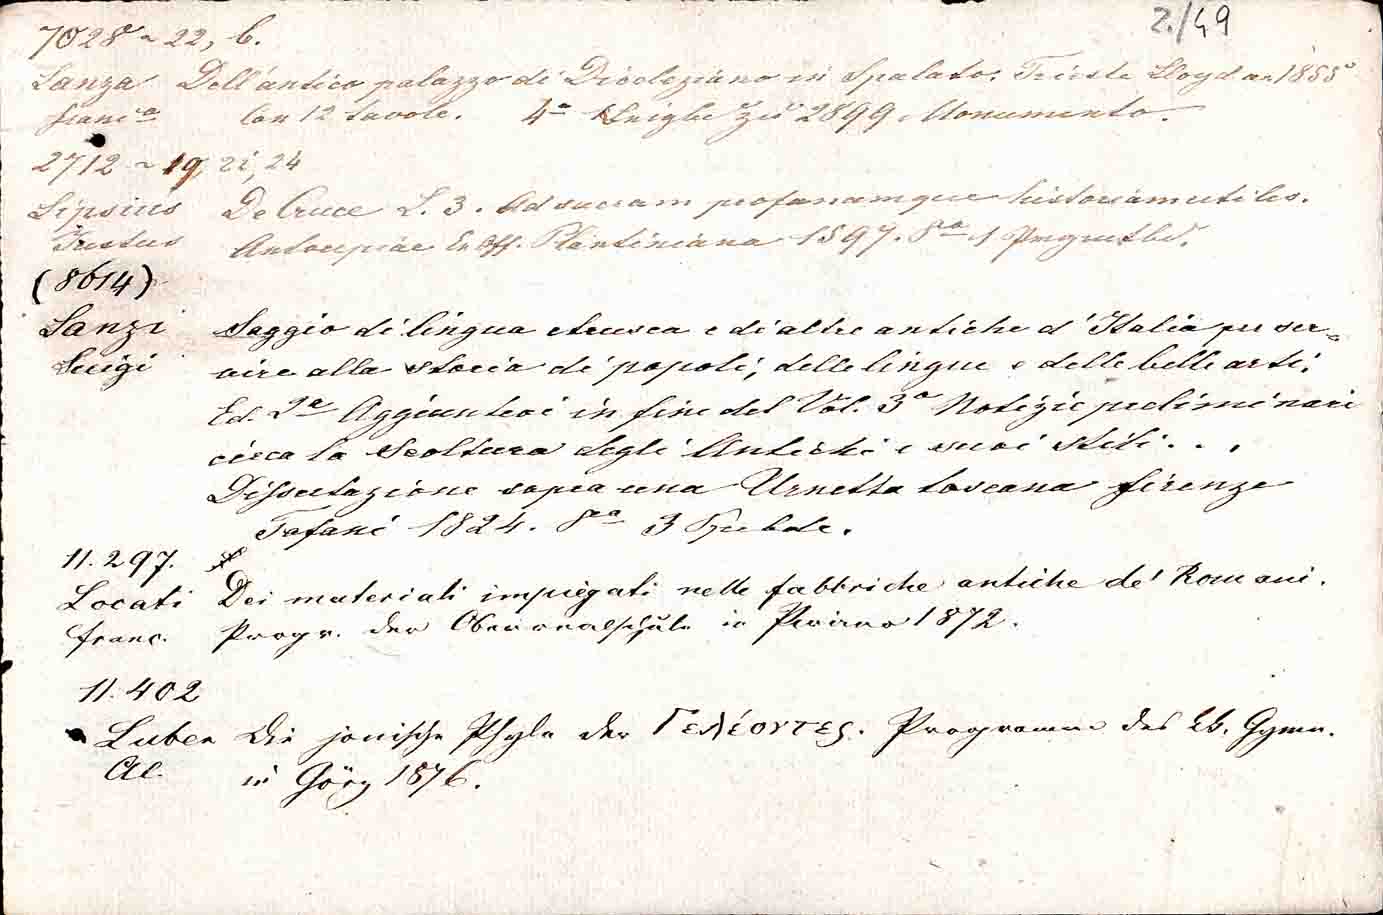 2./49
7028 ~ 22, b.
Lanza Dell'antico palazzo di Diocleziano in Spalato. Trieste Lloyd au. 1855
Franc.ª Con 12 tavole. 4ª zu 2899, Monumento.
2712 ~ 19, 21, 24
Lipsius De Cruce L. 3. Ad sacram profanamque historiam utiles.
Justus Antverpiae Ex Off. Plantiniana 1597. 8ª 1 Prgmtbd.
(8614)
Lanzi Saggio di lingua etrusca e di altre antiche d'Italia per ser-
Luigi vire alla storia di popoli, delle lingue e delle belle arti.
Ed. 2ª Aggiuntevi in fine del Vol. 3º Notizie preliminari
circa la Scoltura degli Antichi e suoi stili...
Dissertazione sopra una Urnetta toscana Firenze
Tofani 1824. 8ª 3
11.297.
Locati Dei materiali impiegati nelle fabbriche antiche de' Romani.
Franc. Progr. der Oberrealschule in Pirano 1872.
11.402
Luber Die jonische Phyle der Γελέοντες. Programm des kk. Gymn.
Al. in Görz 1876.